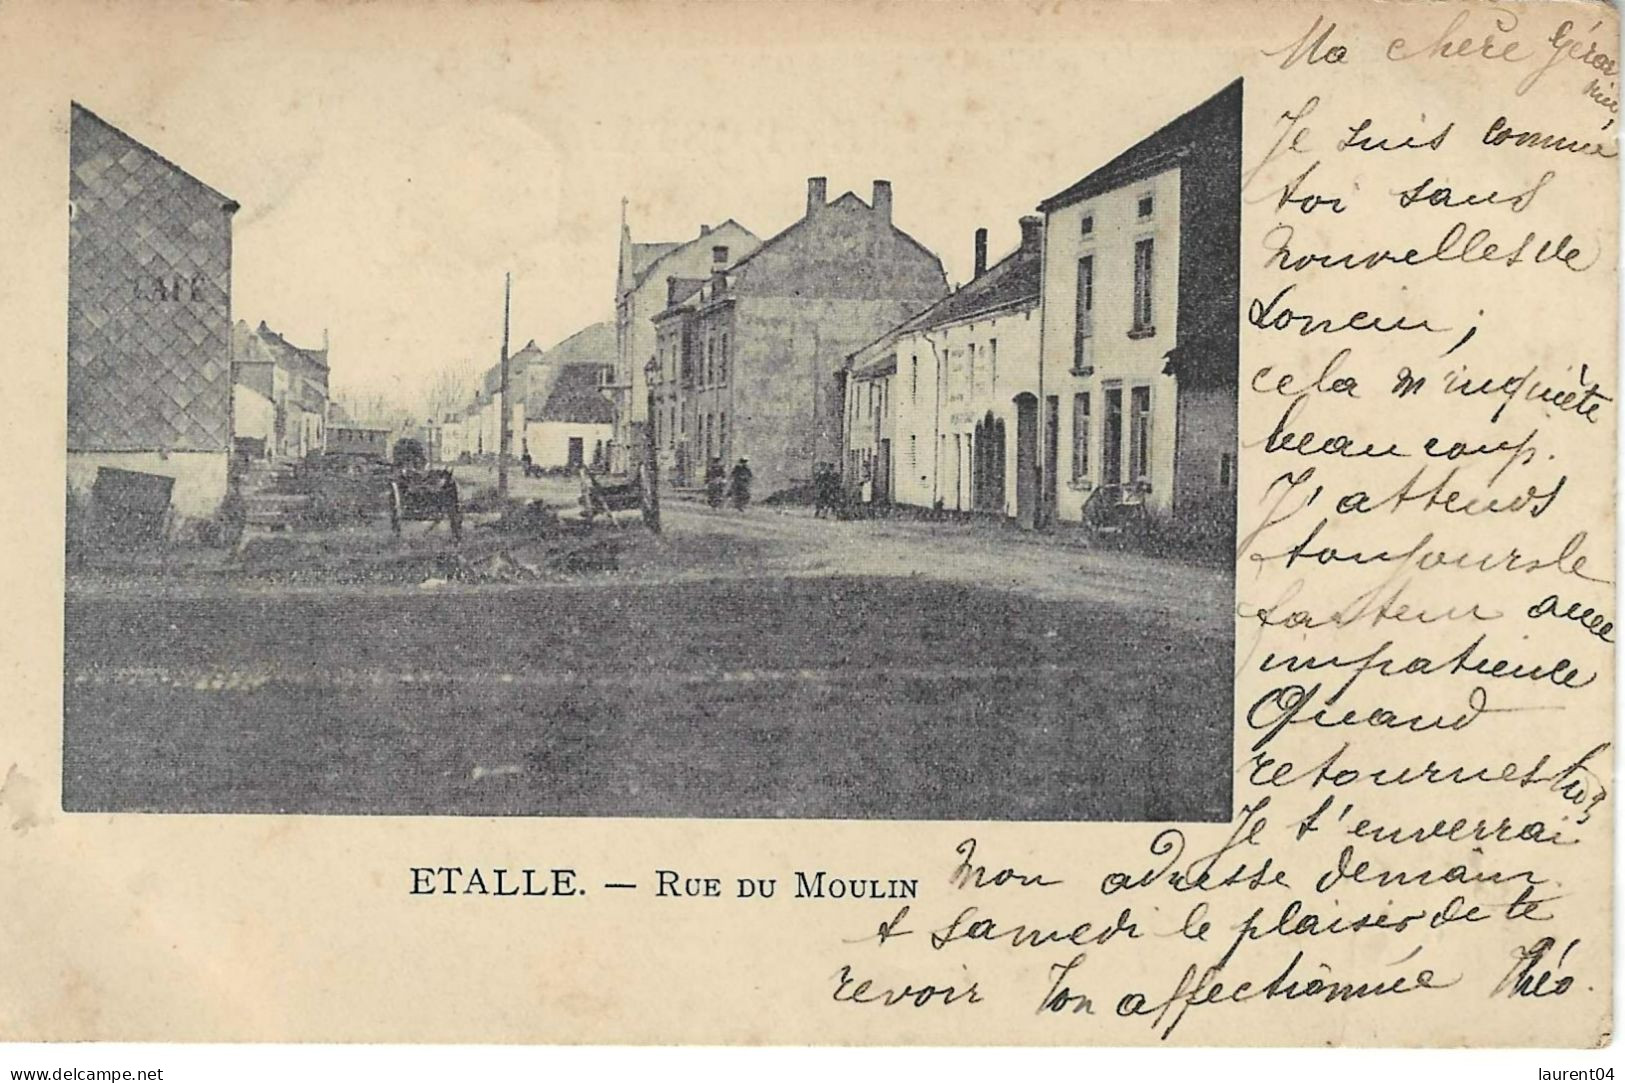 Ma chère Gérar
nie,
Je suis comme
toi sans
nouvelles de
cela m'inquiète
beaucoup.
J'attends
toujours le
facteur avec
impatience
Quand
retournes tu?
Je t'enverrai
mon adresse demain
& samedi le plaisir de te
revoir Ton affectionnée Théo.
CAFÉ
ETALLE. — RUE DU MOULIN
delcampe.net
laurent04